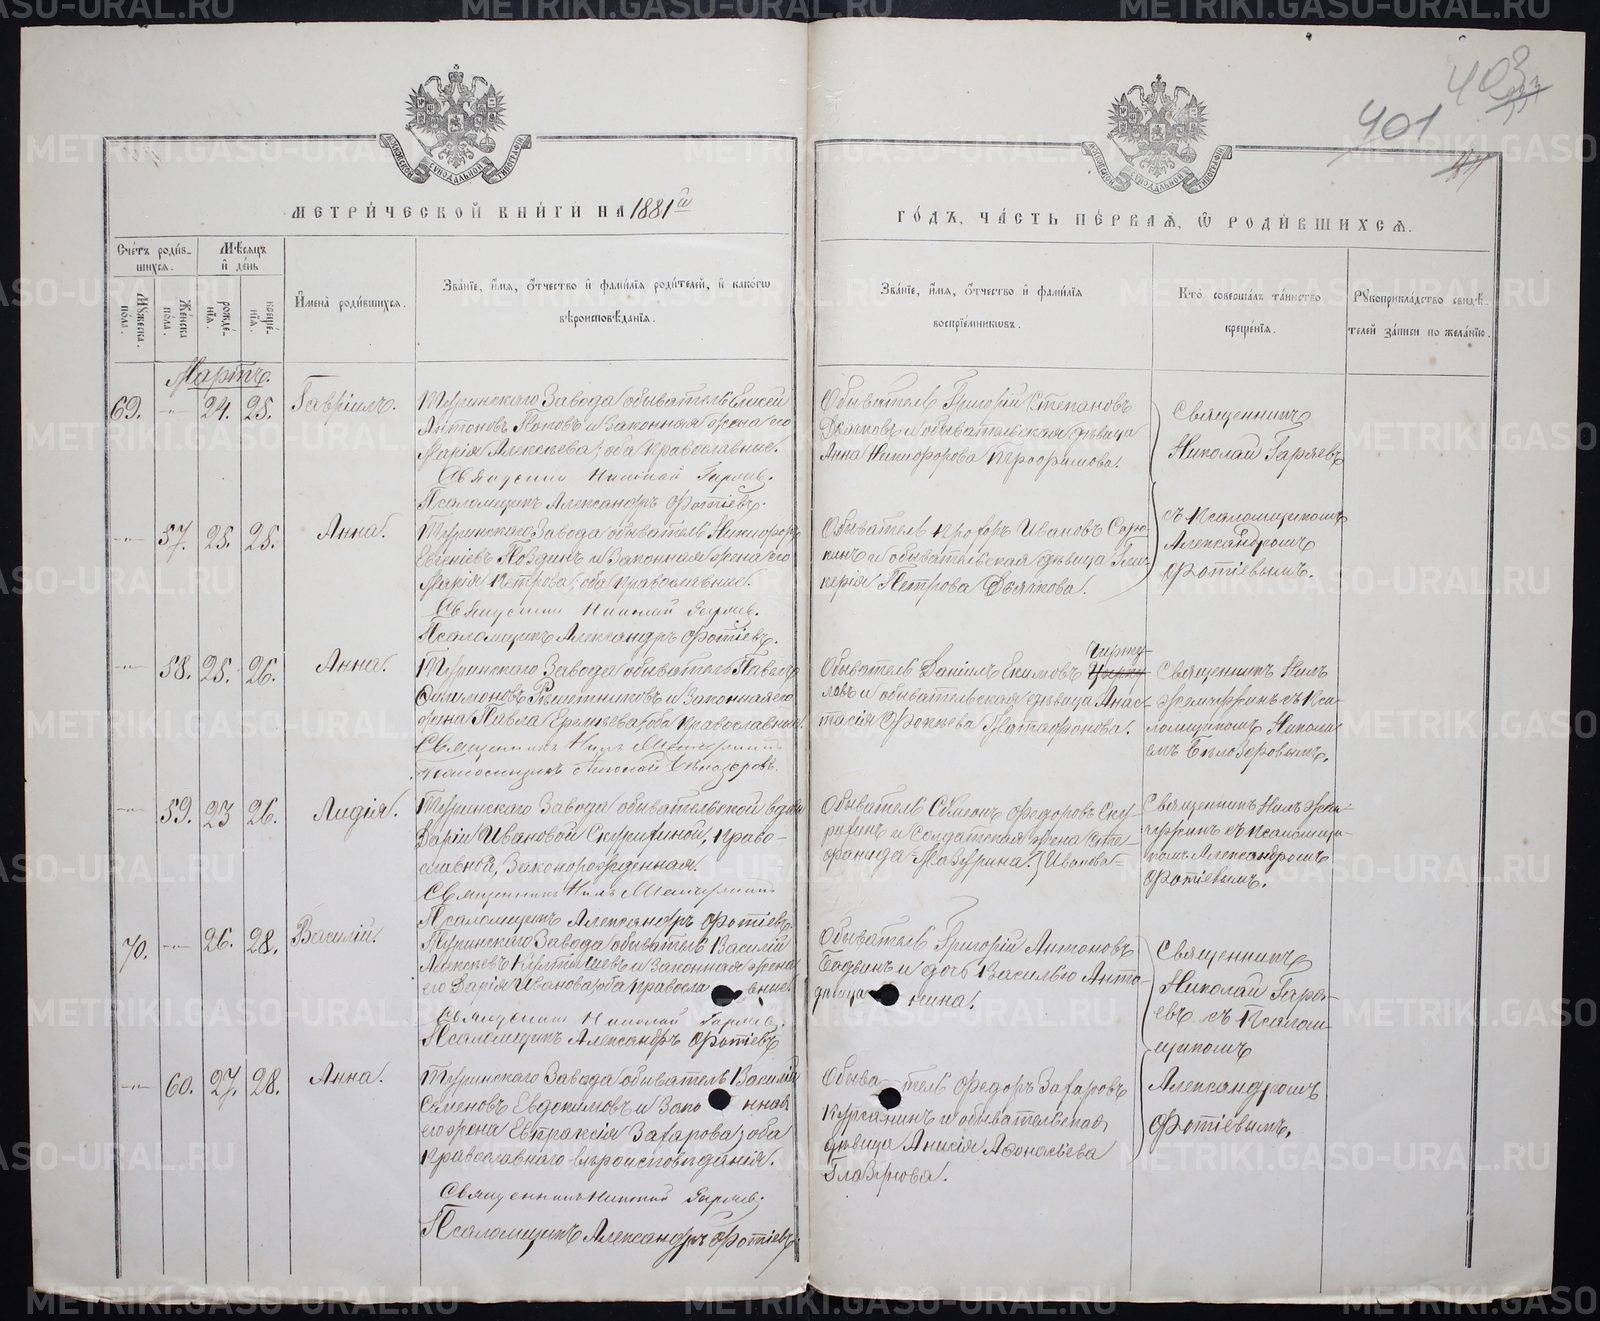 403
401
МЕТРИЧЕСКОЙ КНИГИ НА 1881й
ГОДЪ, ЧАСТЬ ПЕРВАЯ, Ѿ РОДИВШИХСЯ.
Счетъ родившихся.
Мужеска пола.
Женска пола.
Мѣсяцъ и день
рожденія.
крещенія.
Имена родившихся.
Званіе, имя, отчество и фамилія родителей, и какого
вѣроисповѣданія.
Званіе, имя, отчество и фамилія
воспріемниковъ.
Кто совершалъ таинство
крещенія.
Рукоприкладство свидѣтелей записи по желанію.
Мартъ.
69. -"- 24. 25. Гавріилъ.
Туринскаго Завода обыватель Елисей
Антоновъ Поповъ и законная жена его
Марія Алексѣева; оба православные.
Священникъ Николай Гаряевъ.
Псаломщикъ Александръ Фотіевъ.
Обыватель Григорій Степановъ
Дьячковъ и обывательская дѣвица
Анна Никифорова Трофимова.
Священникъ
Николай Гаряевъ
-"- 57. 25. 25. Анна.
Туринскаго Завода обыватель Никифоръ
Евгеніевъ Поздинъ и законная жена его
Марія Петрова, оба православные.
Священникъ Николай Гаряевъ.
Псаломщикъ Александръ Фотіевъ.
Обыватель Прохоръ Ивановъ Соро-
кинъ и обывательская дѣвица Гли-
керія Петрова Дьячкова.
съ Псаломщикомъ
Александромъ
Фотіевымъ.
-"- 58. 25. 26. Анна.
Туринскаго Завода обыватель Павелъ
Филимоновъ Рѣшетниковъ и законная его
жена Павла Еремѣева, оба православные.
Священникъ Нилъ
Псаломщикъ Николай Бѣлозеровъ.
Обыватель Даніилъ Екимовъ Чирту-
ловъ и обывательская дѣвица Анас-
тасія Фокеева
Священникъ Нилъ
съ Пса-
ломщикомъ Никола-
емъ Бѣлозеровымъ.
-"- 59. 23 26. Лидія.
Туринскаго Завода обывательской вдовы
Даріи Ивановой Скурихиной, право-
славная, законорожденная.
Священникъ Нилъ
Псаломщикъ Александръ Фотіевъ.
Обыватель Симеонъ Федоровъ Ску-
рихинъ и солдатская жена Сте-
фанида Мазурина. Иванова
Священникъ Нилъ
съ Псаломщи-
комъ Александромъ
Фотіевымъ.
70. -"- 26. 28. Василій.
Туринскаго Завода обыватель Василій
Алексѣевъ и законная жена
его Дарія Иванова, оба православные.
Священникъ Николай Гаряевъ.
Псаломщикъ Александръ Фотіевъ
Обыватель Григорій Антоновъ
и дочь Василью Анто-
дѣвица нина.
Священникъ
Николай Гаря-
евъ съ Псалом-
щикомъ
-"- 60. 27. 28. Анна.
Туринскаго Завода обыватель Василій
Семеновъ Евдокимовъ и законная
его жена Евпраксія Захарова, оба
православнаго вѣроисповѣданія.
Священникъ Николай Гаряевъ.
Псаломщикъ Александръ Фотіевъ
Обыватель Федоръ Захаровъ
Курсанинъ и обывательская
дѣвица Анисія Афонасьева
Глазунова.
Александромъ
Фотіевымъ.
METRIKI.GASO-URAL.RU